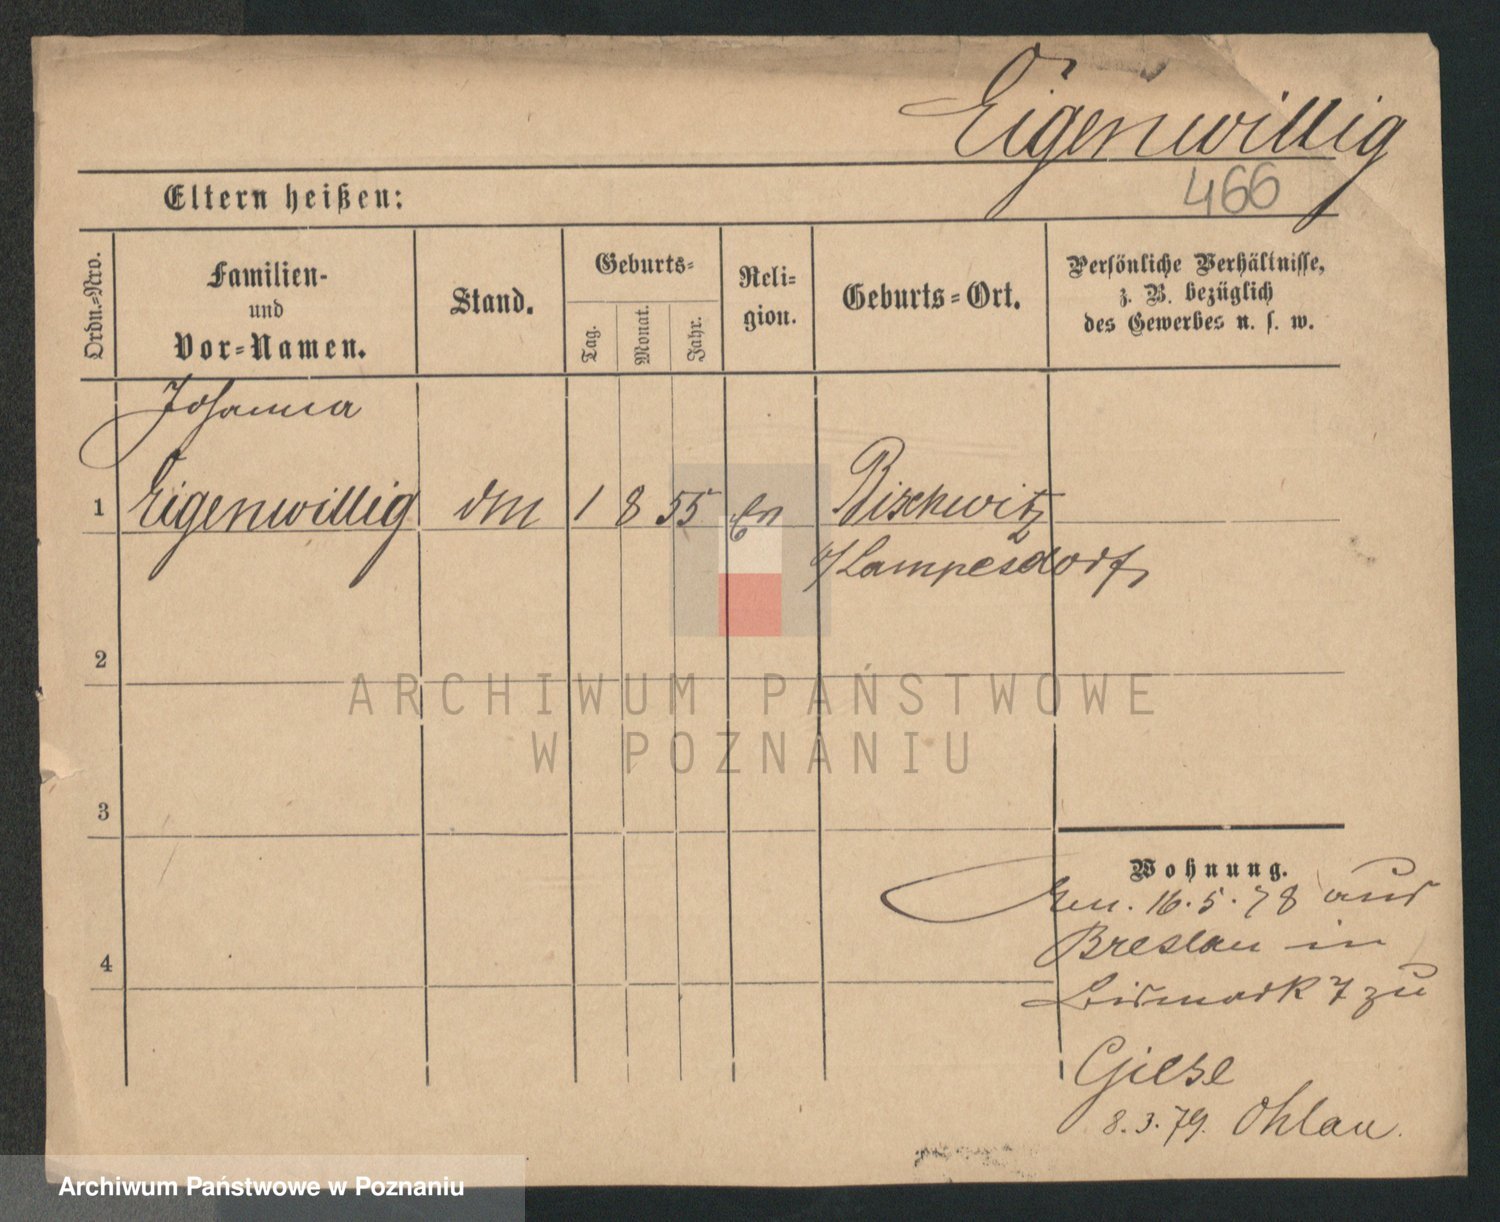 Eigenwillig
466
Eltern heißen:
Ordn.-Nro.
Familien-
und
Vor-Namen.
Stand.
Geburts-
Tag.
Monat.
Jahr.
Reli-
gion.
Geburts-Ort.
Persönliche Verhältnisse,
z. B. bezüglich
des Gewerbes u. s. w.
Johanna
1 Eigenwillig 1 8 55 Bischwitz
Lampesdorf
2
ARCHIWUM PAŃSTWOWE
W POZNANIU
3
Wohnung.
16.5.78 aus
4
Breslau in
Bismark 7 zu
Giese
8.3.79. Ohlau.
Archiwum Państwowe w Poznaniu